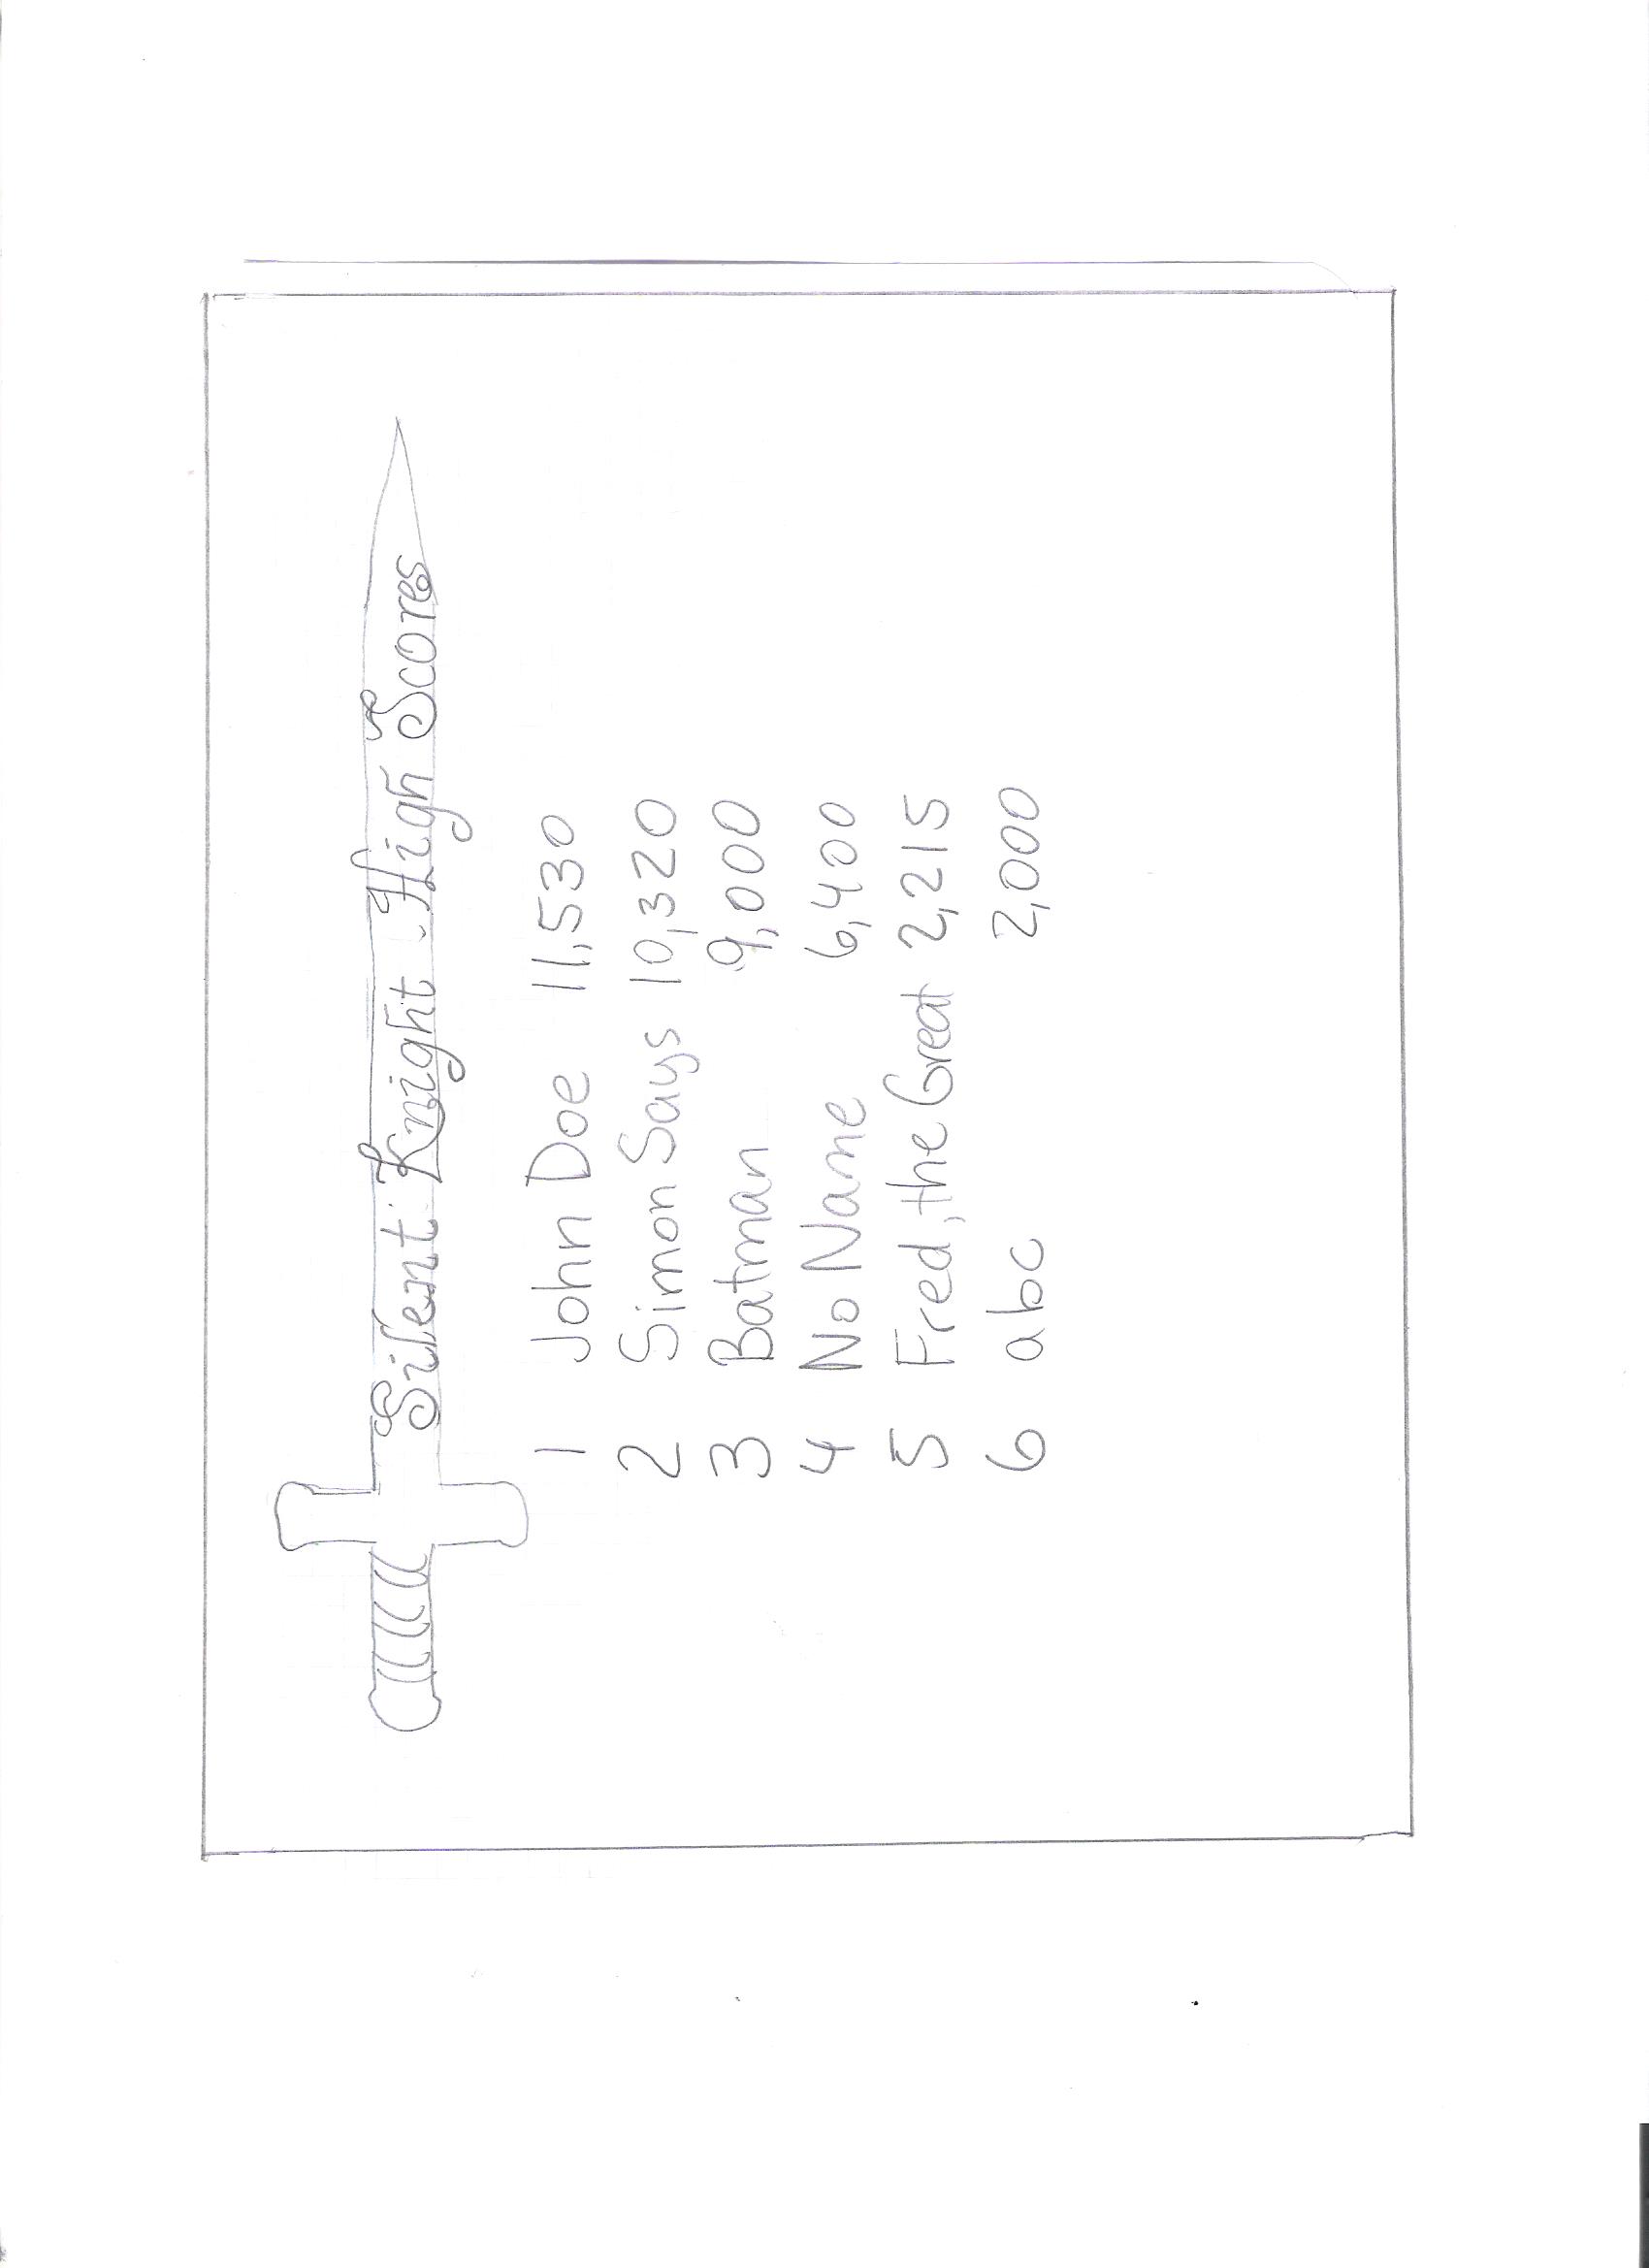 Silent Knight High Scores
1 John Doe 11,530
2 Simon Says 10,320
3 Batman 9,000
4 No Name 6,400
5 Fred, the Great 2,215
6 abc 2,000